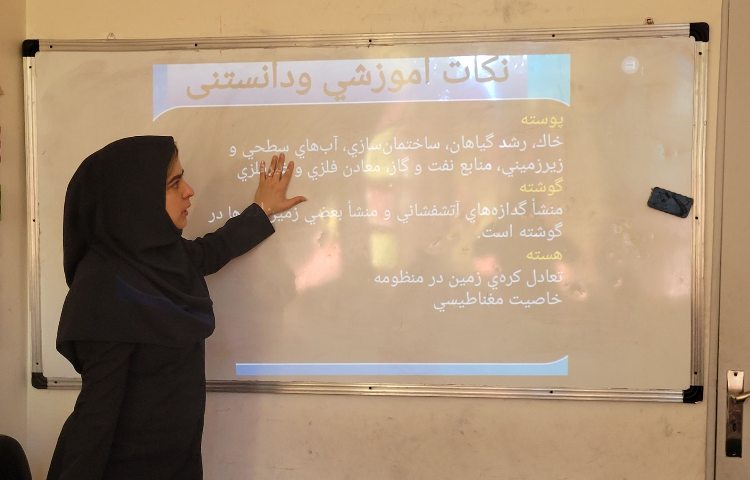 نكات آموزشي ودانستنی
پوسته
خاك، رشد گياهان، ساختمان‌سازي، آب‌هاي سطحي و
زيرزميني، منابع نفت و گاز، معادن فلزي و
گوشته
منشأ گدازه‌هاي آتشفشاني و منشأ بعضي در
گوشته است.
هسته
تعادل كره‌ي زمين در منظومه
خاصيت مغناطيسي